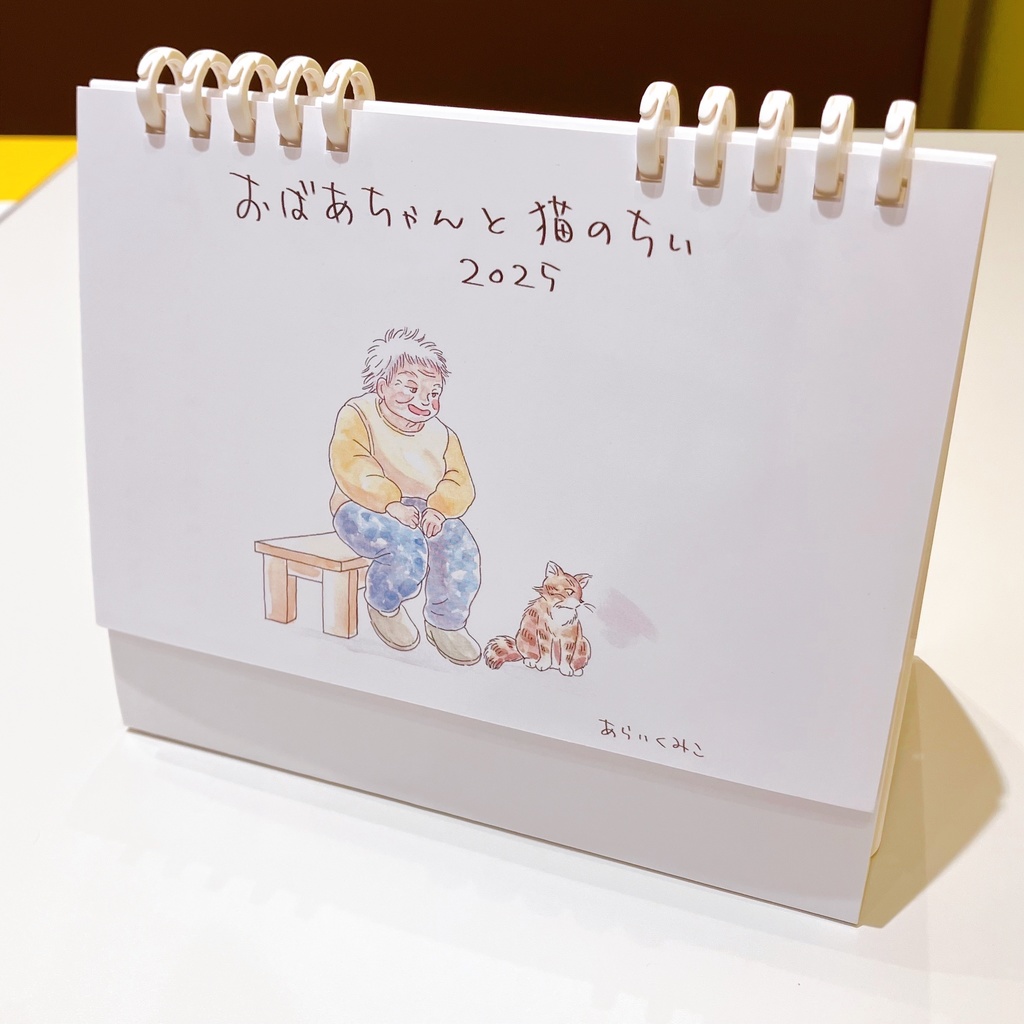 おばあちゃんと猫のちぃ
2025
あらいくみこ